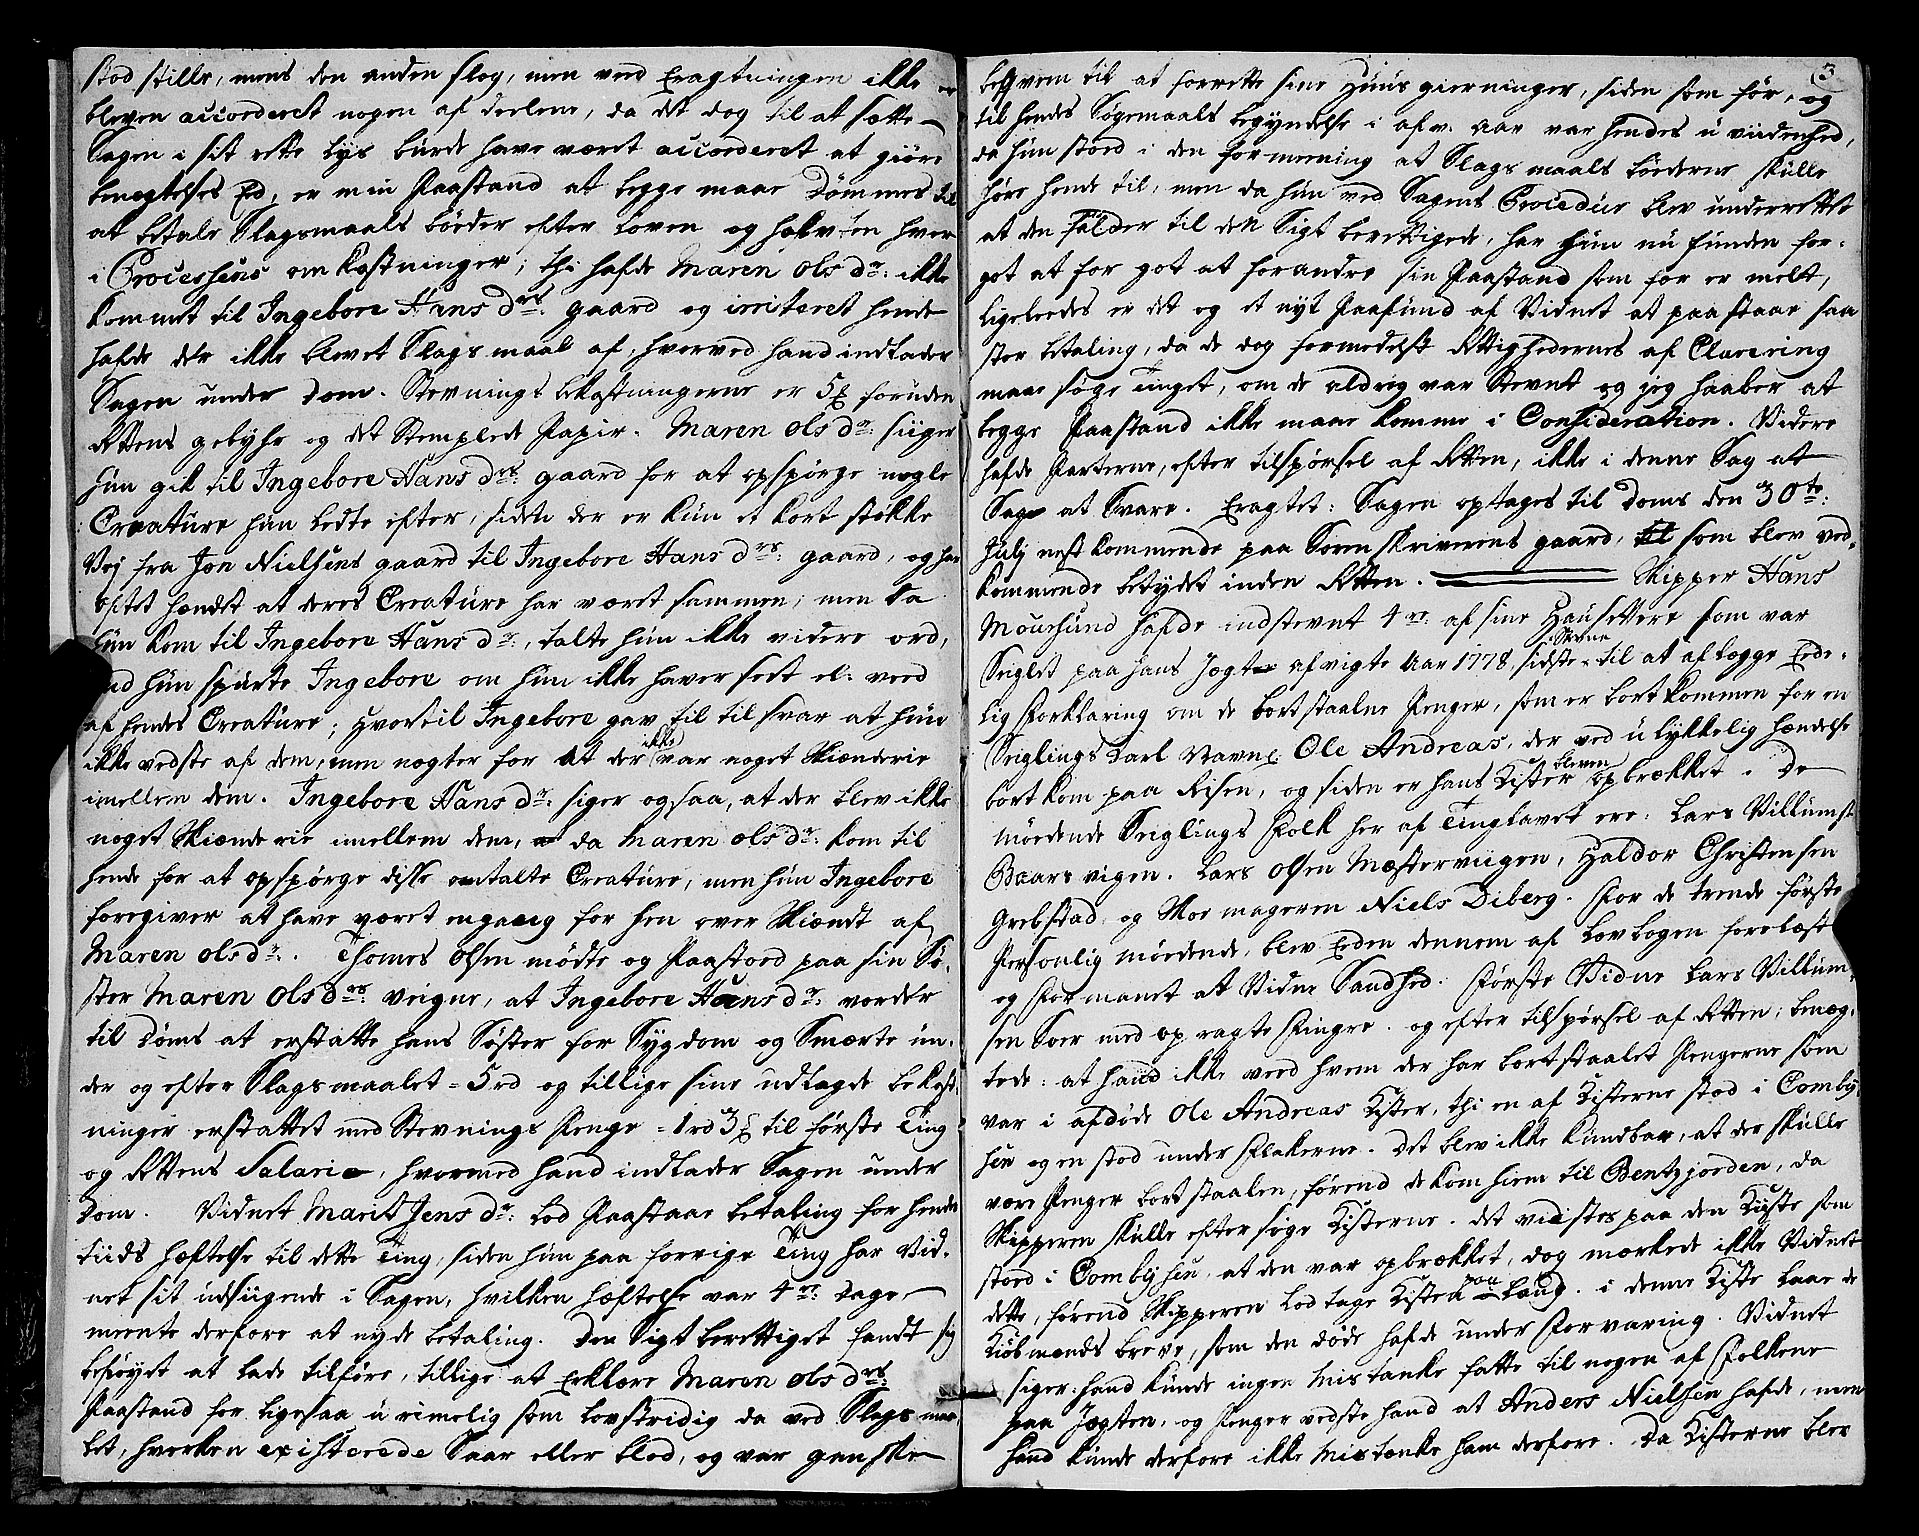 stod stille, mens den anden slog, men ved Eragtningen ikke er
bleven accorderet nogen af deelene, da det dog til at sætte
Sagen i sit rette lys burde have været accorderet at giøre
benegtelses Eed, er min Paastand at begge maae Dömmes til
at betale Slagsmaals böeder efter loven og halvten hver
i Processens omkostninger; thi hafde Maren Ols dr: ikke
kommet til Ingebore Hans drs: gaard og irriteret hende
hafde der ikke blevet Slagsmaal af, hvorved hand indlader
Sagen under Dom. Stevnings bekostningerne er 5 foruden
Rettens gebyhr og det Stemplede Papir. Maren Ols dr: siiger
hun gik til Ingebore Hans drs: gaard for at opspörge nogle
Creature hun ledte efter, siden der er kun et kort støkke
Vej fra Jon Nielsens gaard til Ingebore Hans drs: gaard, og har
oftet hændt at deres Creature har været sammen; men da
hun kom til Ingebore Hans dr:, talte hun ikke videre ord,
end hun spurte Ingebore om hun ikke haver seet el: veed
af hendes Creature; hvortil Ingebore gav til til svar at hun
ikke vedste af dem, men negter for at der ikke var noget Skiænderie
imellem dem. Ingebore Hans dr: siger ogsaa, at der blev ikke
noget Skiænderie imellem dem, da Maren Ols dr: kom til
hende for at opspørge disse omtalte Creature, men hun Ingebore
foregiver at have været engang for hen over Skiændt af
Maren Ols dr:. Thomes Olsen mødte og Paastod paa sin Sø-
ster Maren Ols drs veigne, at Ingebore Hans dr: vorder
til Döms at erstatte hans Søster for Sygdom og Smærte un-
der og efter Slagsmaalet = 5 rd og tillige sine udlagde bekost-
ninger erstattet med Stevnings Penge = 1 rd 3 til første Ting
og Rettens Salarie, hvormed hand indlader Sagen under
Dom. Vidnet Marit Jens dr: lod Paastaae betaling for hendes
tiids hæftelse til dette Ting, siden hun paa forrige Ting har Vid-
net sit udsiigende i Sagen, hvilken hæftelse var 4re: Dage,
meente derfore at nyde betaling. Den Sigtberettiget fandt sig
beføyet at lade tilføre, tillige at Erklære Maren Ols drs:
Paastand for ligesaa urimelig som lovstridig da ved Slagsmaa-
let, hverken existerede Saar eller blod, og var ganske
3
beqvem til at forrette sine Huus gierninger, siden som før, og
til hendes Søgemaals begyndelse i afv: Aar var hendes uviidenhed,
da hun stoed i den formeening at Slagsmaals böederne skulle
höre hende til, men da hun ved Sagens Procedur blev underrettet
at den falder til den Sigt berettigede, har hun nu funden for-
got at for got at forandre sin Paastand som for er melt,
ligeleedes er det og et nyt Paafund af Vidnet at paastaae saa
stor betaling, da de dog formedelst Rettighedernes af Clarering
maae søge Tinget, om de aldrig var Stevnt og jeg haaber at
begge Paastand ikke maae komme i Consideration. Videre
hafde Parterne, efter tilspørsel af Retten, ikke i denne Sag at
Sag at Svare. Eragtet: Sagen optages til Doms den 30te:
Julj nestkommende paa Sorenskriverens gaard, som blev ved-
kommende betydet inden Retten. Skipper Hans
Moursund hafde indstevnt 4re: af sine Hausettere som var
Seiglet paa hans Jægt afvigte Aar 1778, sidste Stevne til at aflegge Eede-
lig Forklaring om de bortstaalne Penger, som er bortkommen for en
Seiglings Karl Navnl: Ole Andreas, der ved ulykkelig hændelse
bortkom paa Reisen, og siden er hans Kister bleven opbrækket. De
mödende Seiglings Folk her af Tinglavet ere: Lars Villumsen
Baarsvigen. Lars Olsen Mæstervigen, Haldor Christensen
Grebstad, og Skoemageren Niels Diberg. For de trende første
Personlig mødende, blev Eeden dennem af Lovbogen forelæst
og Formanet at Vidne Sandhed. Første Vidne Lars Villum-
sen Svor med opragte Fingre. og efter tilspørsel af Retten; benæg-
tede: at hand ikke veed hvem der har bortstaalet Pengerne som
var i afdøde Ole Andreas Kister, thi en af Kisterne stod i Comby-
sen og en stod under Flakerne. Det blev ikke kundbar, at der skulle
være Penger bortstaalen, førend de kom hiem til Bentzjorden, da
Skipperen skulle eftersøge Kisterne. Det vidistes paa den Kiiste som
stoed i Combysen, at den var opbrækket, dog mærkede ikke Vidnet
dette, førend Skipperen lod tage Kisten paa land. i denne Kiste laae de
Kiöbmænds breve, som den döde hafde under Forvaring. Vidnet
siger: hand kunde ingen Mistanke fatte til nogen af Folkene
paa Jægten, og Penger vedste hand at Anders Nielsen hafde, men
hand kunde derfore ikke Mistænke ham derfore. Da Kisterne blev